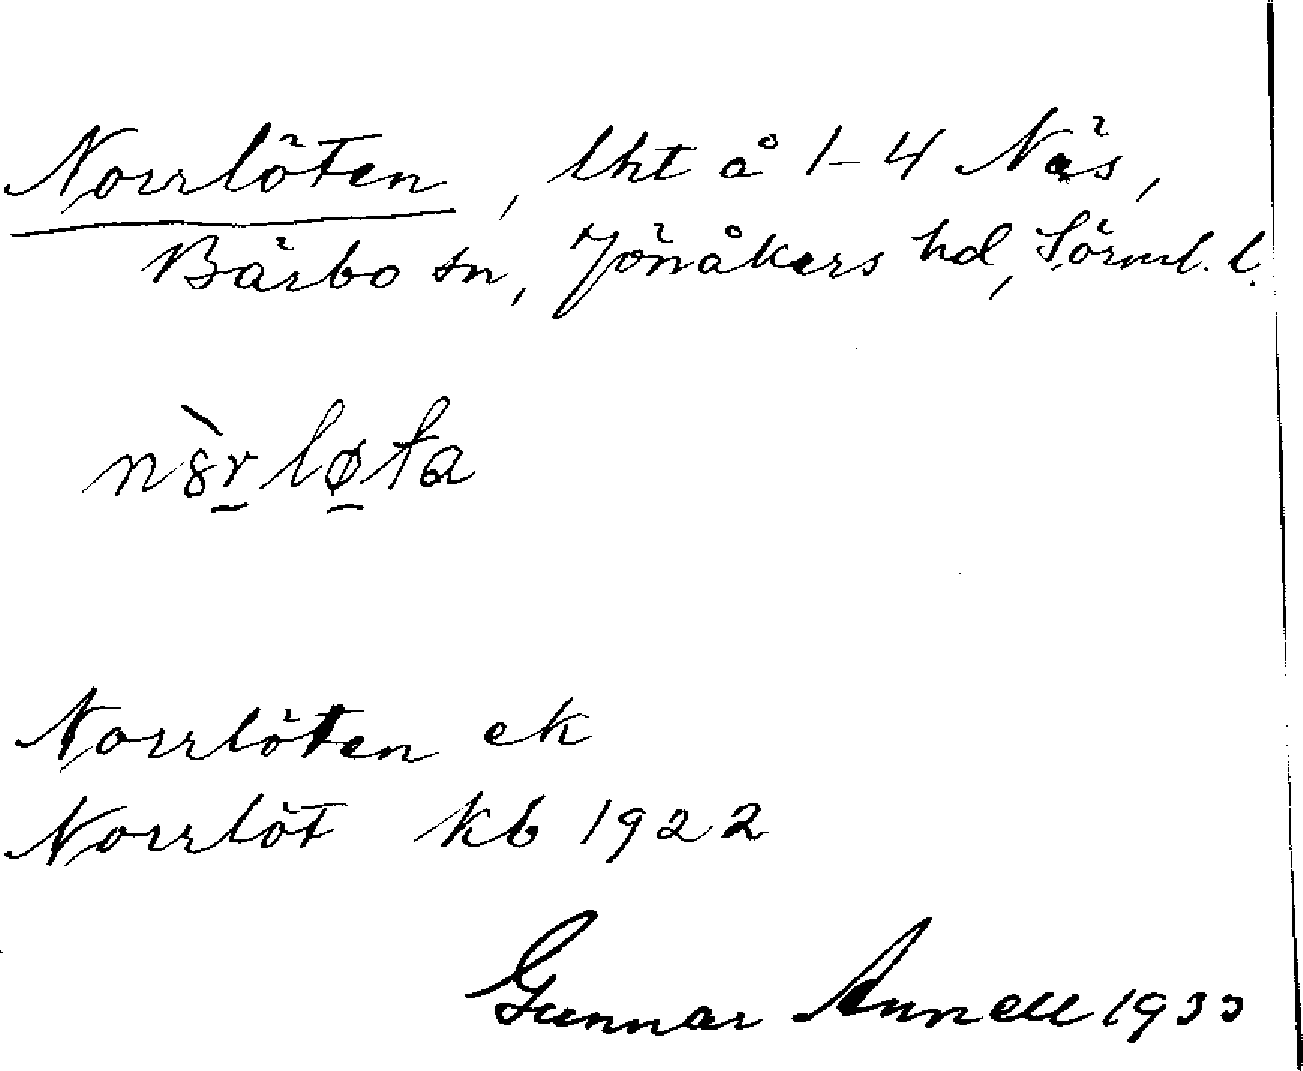 Norrlöten, lht å 1-4 Näs,
Bärbo sn, Jönåkers hd, Sörml. l.
Norrlöten ek
Norrlöt kb 1922
Gunnar Annell 1933